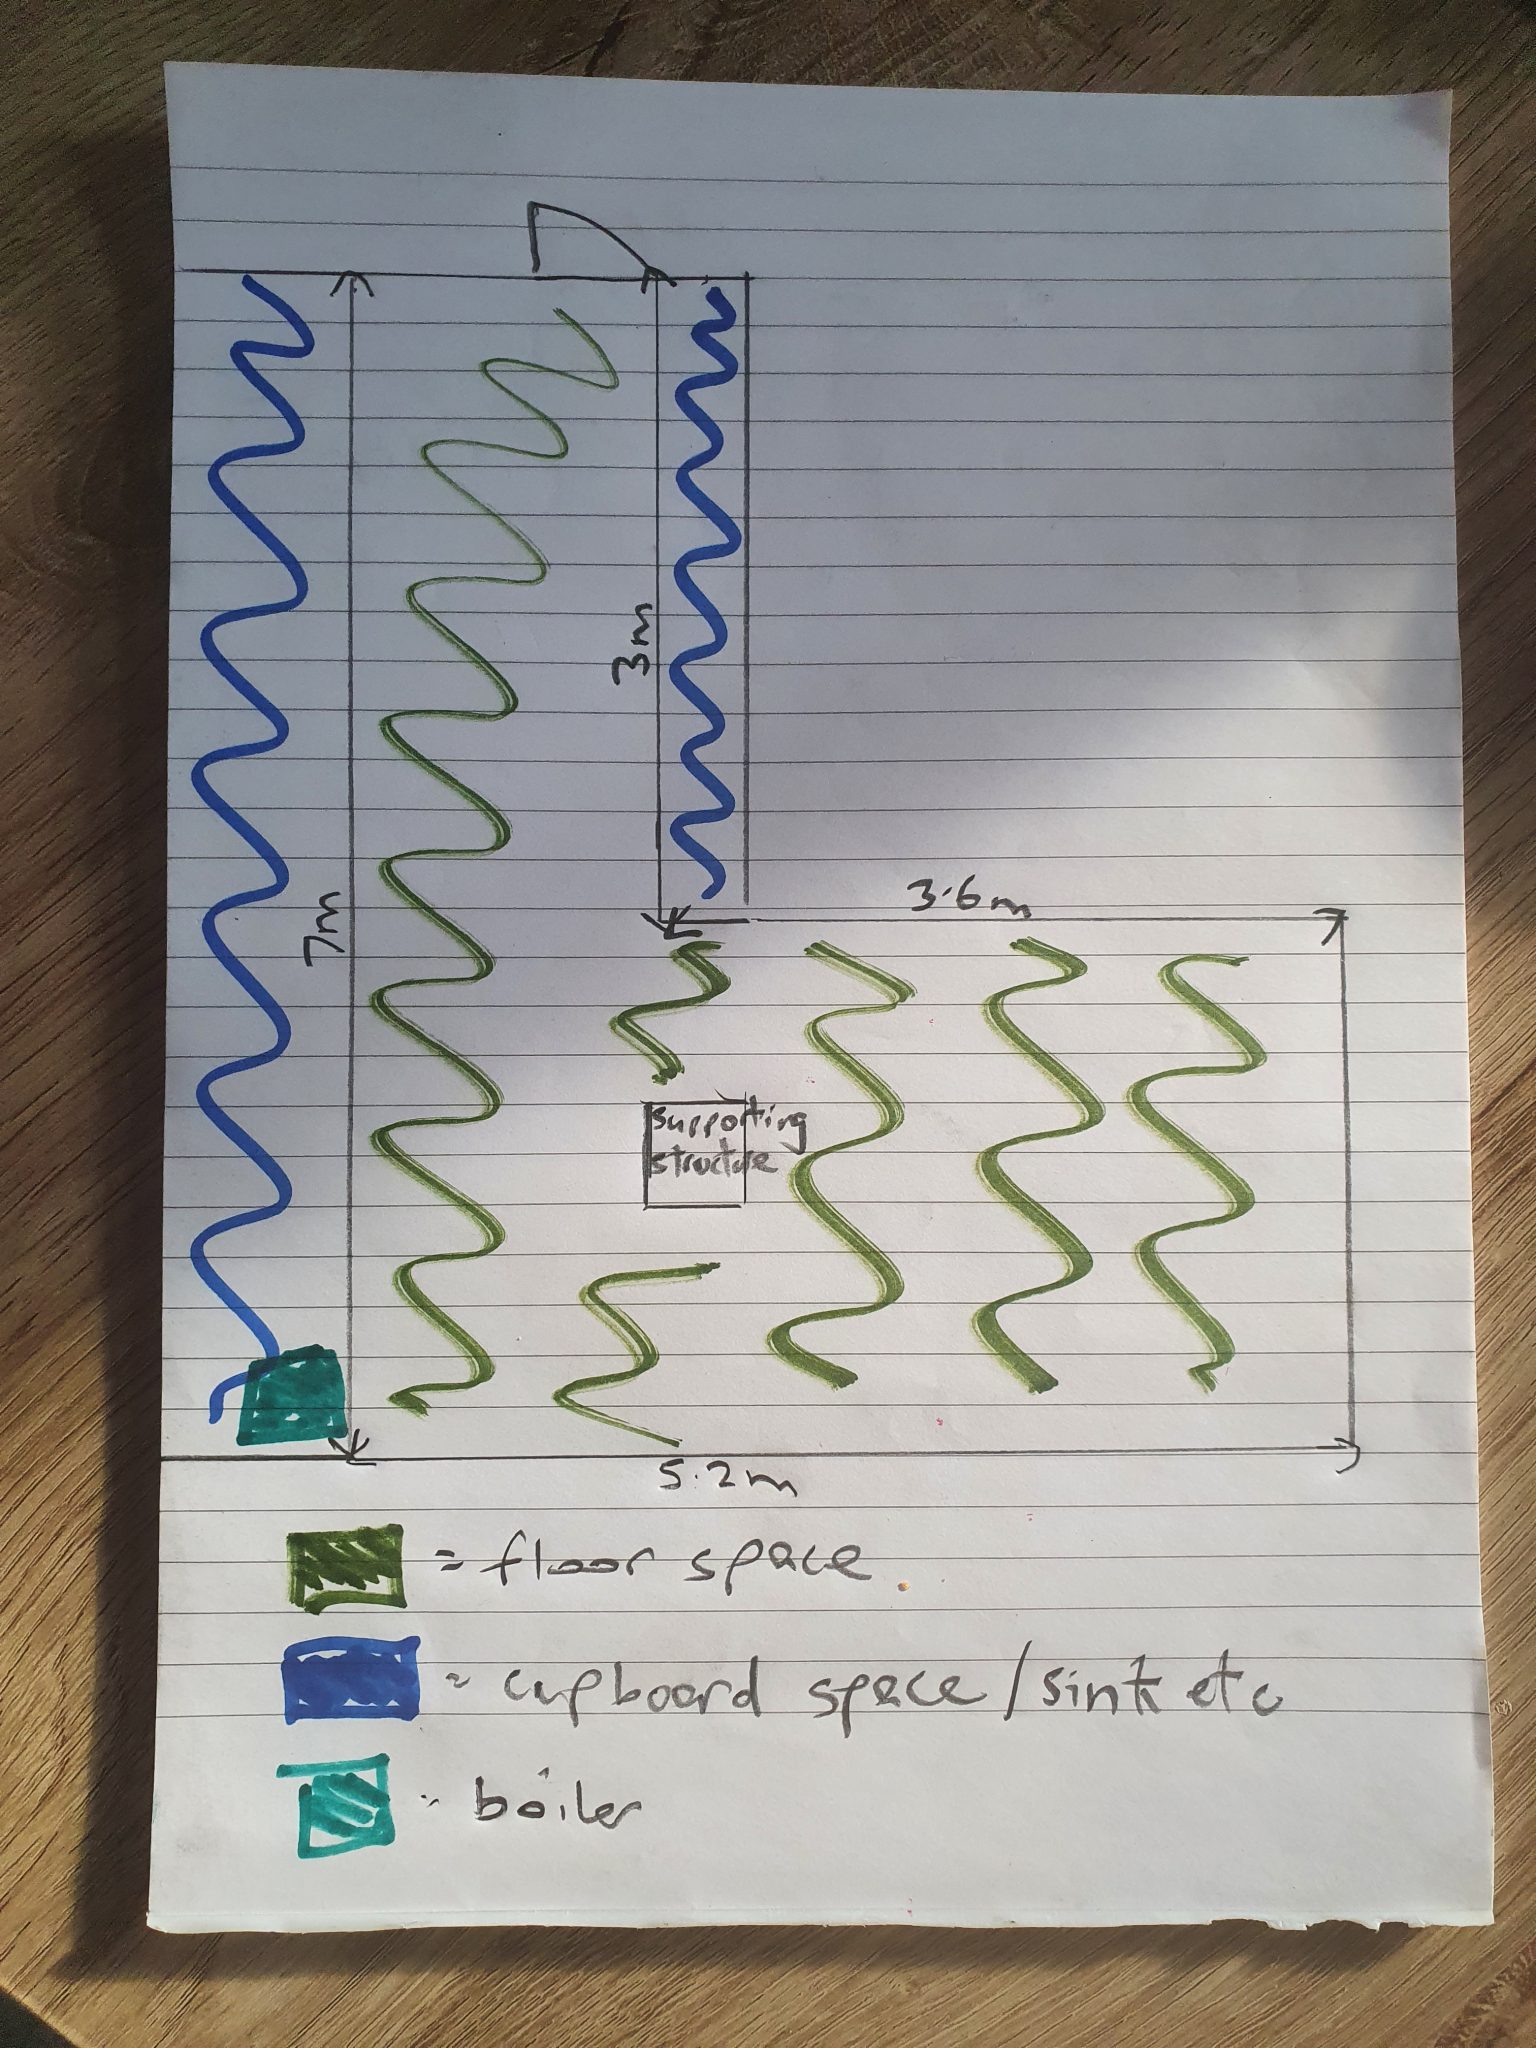 3m
3.6m
7m
supporting
structure
5.2m
= floor space
= cupboard space/sink etc
= boiler